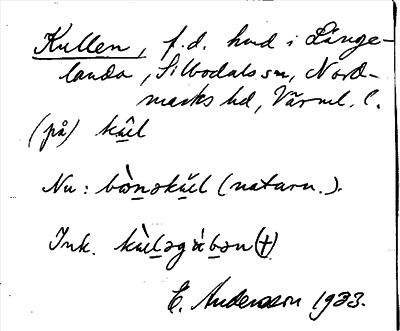 Kullen, f.d. hud i Långe-
landa, Silbodals sn, Nord-
marks hd, Värml. l.
(på) kùl
Nu: bònəkŭl (naturn.).
Ink. kùləgúbən (†)
E. Andersson 1933.